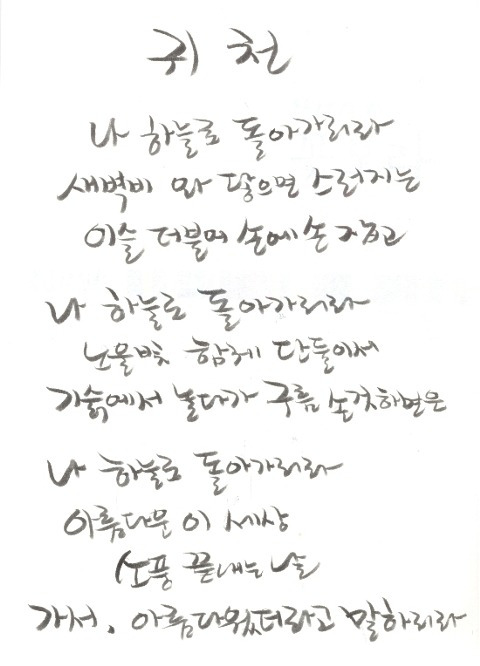 귀천
나 하늘로 돌아가리라
새벽비 와 닿으면 스러지는
이슬 더불어 손에 손 잡고
나 하늘로 돌아가리라
노을빛 함께 단둘이서
기슭에서 놀다가 구름 손짓하면은
나 하늘로 돌아가리라
아름다운 이 세상
소풍 끝내는 날
가서, 아름다웠더라고 말하리라